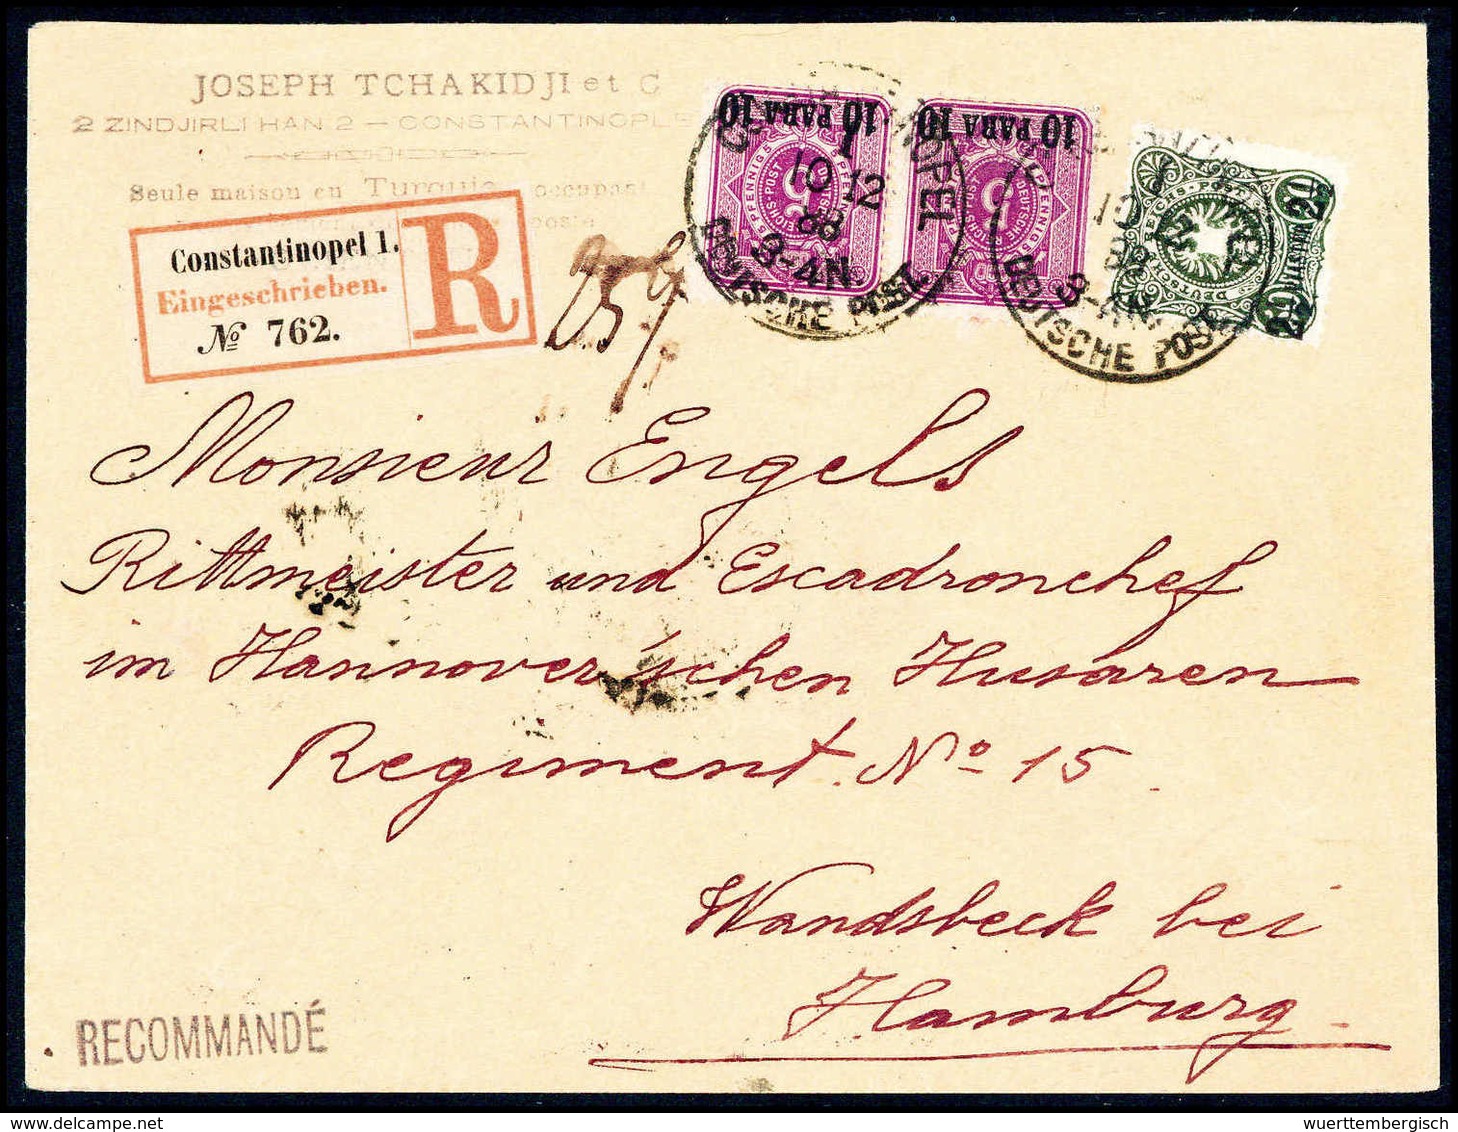 JOSEPH TCHAKIDJI et C
2 ZINDJIRLI HAN 2 — CONSTANTINOPLE
Seule maison en Turquie occupant
Constantinopel 1.
Eingeschrieben.
№ 762.
R
10 PARA 10
10 PARA 10
5 PFENNIG 5
5 PFENNIG 5
10 12
88
3-4N.
DEUTSCHE POST
3-4N.
DEUTSCHE POST
Monsieur Engels
Rittmeister und Escadronchef
im Hannover'schen Husaren
Regiment No 15
Wandsbeck bei
Hamburg
RECOMMANDÉ
wuerttembergisch